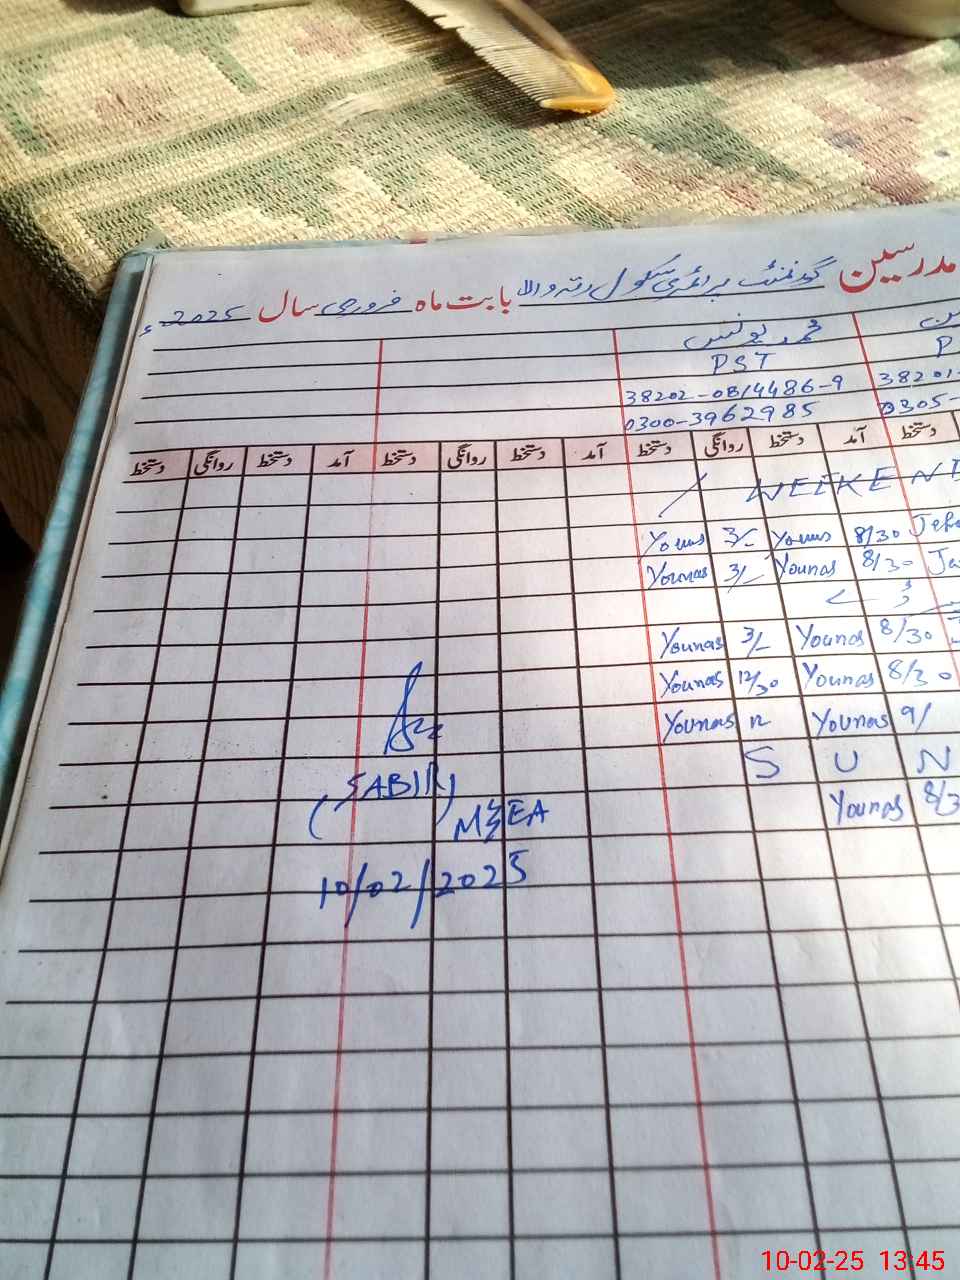 مدرسین گورنمنٹ پرائمری سکول رتہ والا بابت ماہ فروری سال 2025ء
محمد یونس
PST P
38202-0814486-9 38201-
0300-3962985 0305-
دستخط آمد دستخط روانگی دستخط آمد دستخط روانگی دستخط آمد دستخط روانگی دستخط
WEEKEND
Younas 3/- Younas 8/30
Younas 3/- Younas 8/30
Younas 3/- Younas 8/30
Younas 12/30 Younas 8/30
Younas 12 Younas 9/
S U N
Younas 8/3
(SABIR)
MEA
10/02/2025
10-02-25 13:45